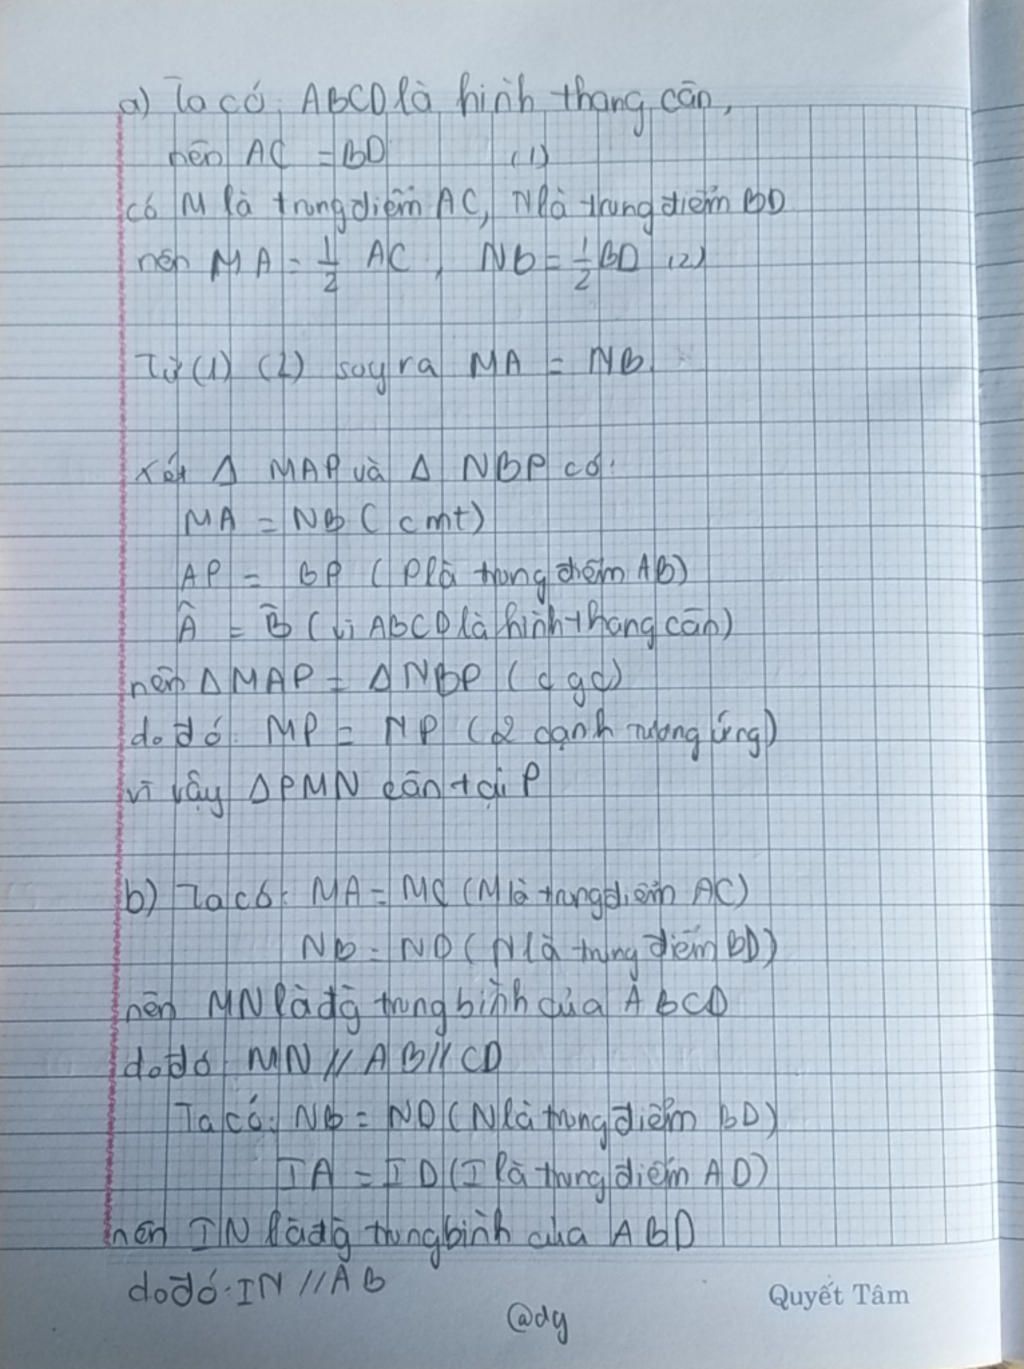 a) Ta có: ABCD là hình thang cân,
nên AC = BD (1)
có M là trung điểm AC, N là trung điểm BD
nên MA = 1/2 AC, NB = 1/2 BD (2)
Từ (1) (2) suy ra MA = NB.
Xét Δ MAP và Δ NBP có:
MA = NB (cmt)
AP = BP (P là trung điểm AB)
Â = B̂ (vì ABCD là hình thang cân)
nên Δ MAP = Δ NBP (c g c)
do đó: MP = NP (2 cạnh tương ứng)
vì vậy Δ PMN cân tại P
b) Ta có: MA = MC (M là trung điểm AC)
NB = ND (N là trung điểm BD)
nên MN là đg trung bình của ABCD
do đó: MN // AB // CD
Ta có: NB = ND (N là trung điểm BD)
IA = ID (I là trung điểm AD)
nên IN là đg trung bình của ABD
do đó: IN // AB
Quyết Tâm
@dy